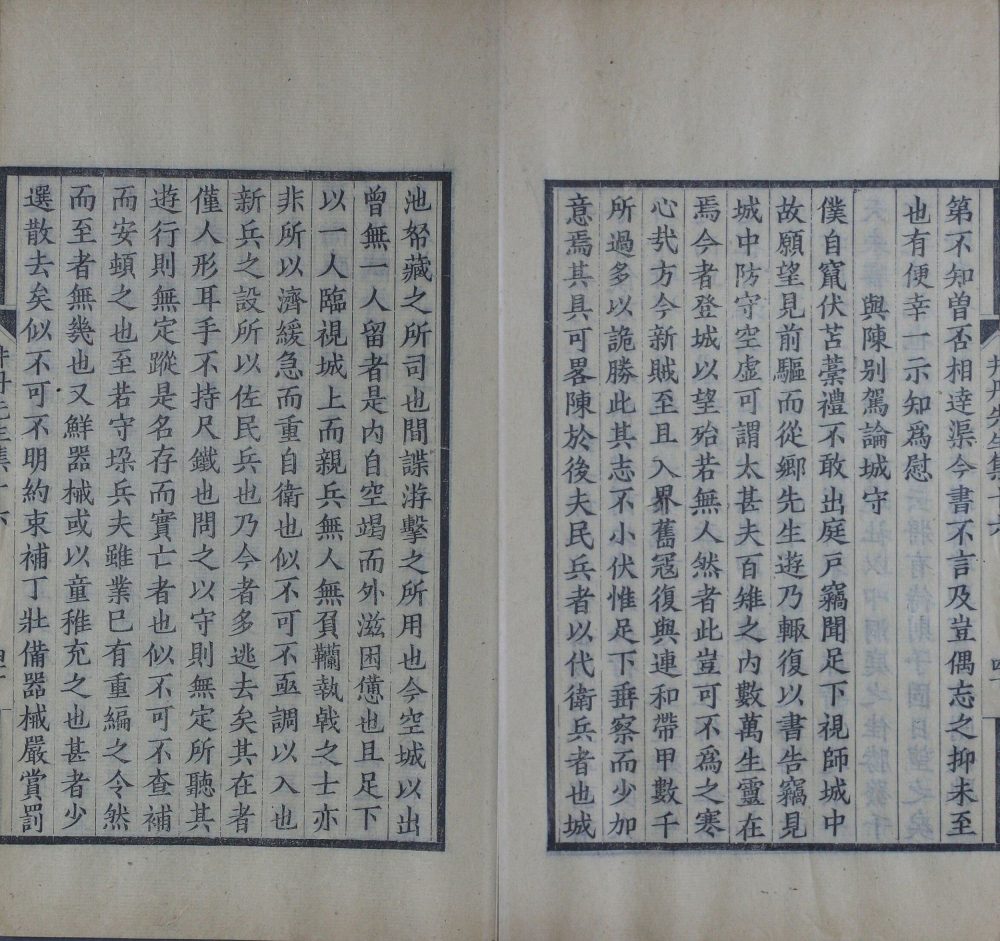 第不知曾否相逹渠今書不言及豈偶忘之抑未至
也有便幸一示知爲慰
與陳别駕論城守
僕自竄伏苫藁禮不敢出庭戶竊聞足下視師城中
故願望見前驅而從鄉先生遊乃輙復以書告竊見
城中防守空虛可謂太甚夫百雉之内數萬生靈在
焉今者登城以望殆若無人然者此豈可不爲之寒
心㢤方今新賊至且入界舊冦復與連和帶甲數千
所過多以詭勝此其志不小伏惟足下垂察而少加
意焉其具可畧陳於後夫民兵者以代衛兵者也城
池帑藏之所司也間諜游擊之所用也今空城以出
曾無一人留者是内自空竭而外滋困憊也且足下
以一人臨視城上而親兵無人無負韊執戟之士亦
非所以濟緩急而重自衛也似不可不亟調以入也
新兵之設所以佐民兵也乃今者多逃去矣其在者
僅人形耳手不持尺鐵也問之以守則無定所聽其
遊行則無定蹤是名存而實亡者也似不可不查補
而安頓之也至若守垜兵夫雖業已有重編之令然
而至者無幾也又鮮器械或以童稚充之也甚者少
選散去矣似不可不明約束補丁壯備器械嚴賞罰
井丹先生集十六